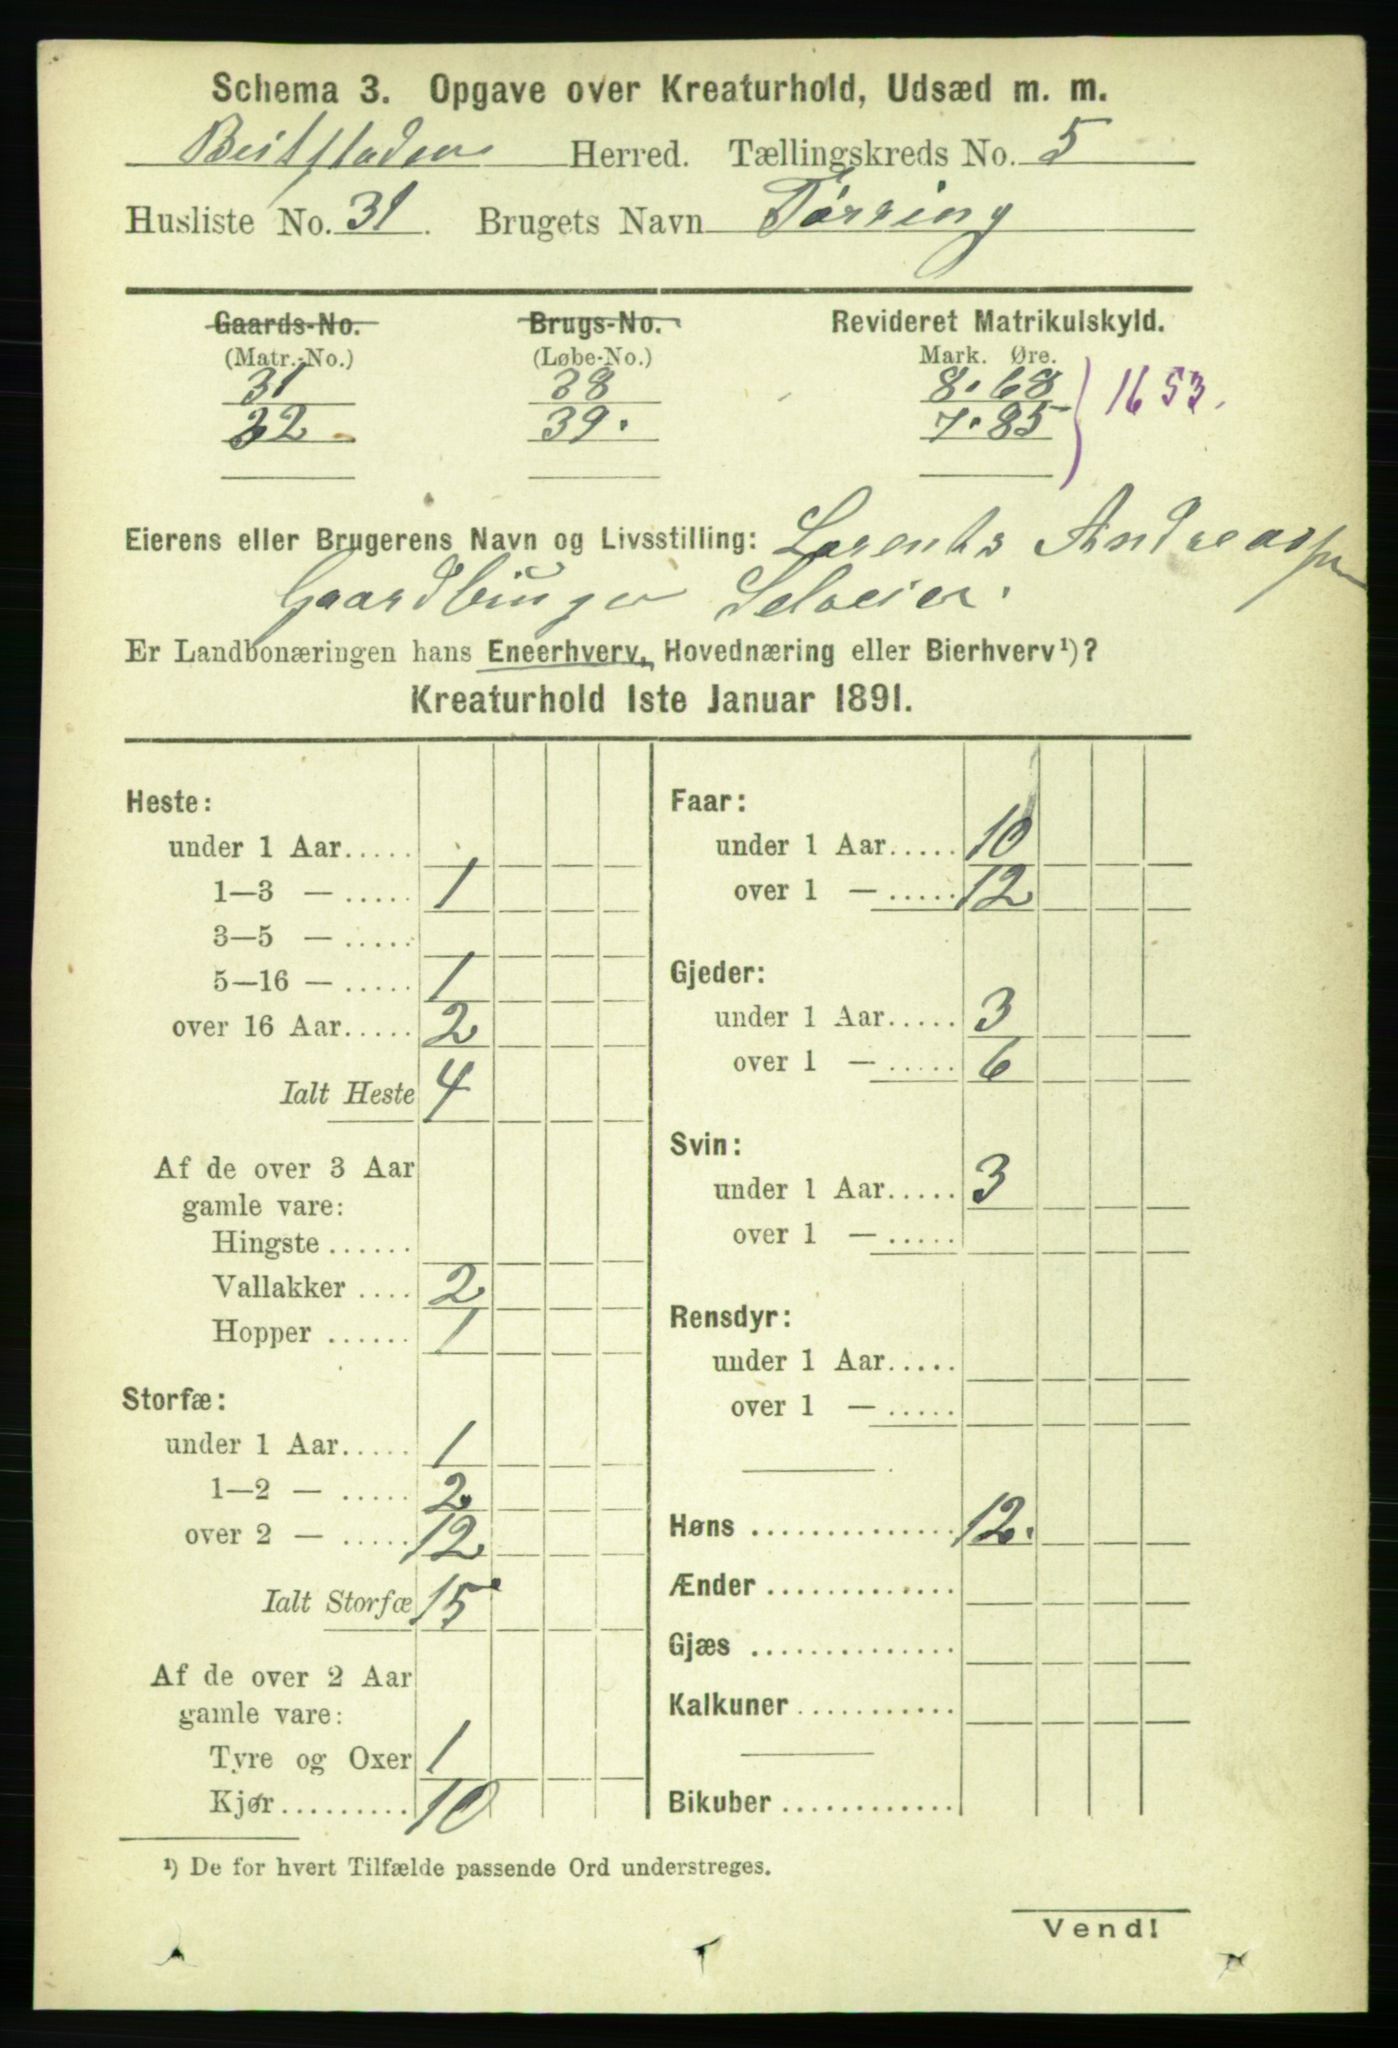 Schema 3. Opgave over Kreaturhold, Udsæd m. m.
Beitstaden Herred. Tællingskreds No. 5
Husliste No. 31. Brugets Navn Tørring
Gaards-No. Brugs-No. Revideret Matrikulskyld.
(Matr.-No.) (Løbe-No.) Mark. Øre.
31 38 8.68
32 39. 7.85
1653.
Eierens eller Brugerens Navn og Livsstilling: Lorents Andreassen
Gaardbruger Selveier.
Er Landbonæringen hans Eneerhverv, Hovednæring eller Bierhverv¹)?
Kreaturhold 1ste Januar 1891.
Heste:
under 1 Aar.....
1—3 — ..... 1
3—5 — .....
5—16 — ..... 1
over 16 Aar..... 2
Ialt Heste 4
Af de over 3 Aar
gamle vare:
Hingste ......
Vallakker .... 2
Hopper ...... 1
Storfæ:
under 1 Aar..... 1
1—2 — ..... 2
over 2 — ..... 12
Ialt Storfæ 15
Af de over 2 Aar
gamle vare:
Tyre og Oxer 1
Kjør......... 10
Faar:
under 1 Aar..... 10
over 1 — ..... 12
Gjeder:
under 1 Aar..... 3
over 1 — ..... 6
Svin:
under 1 Aar..... 3
over 1 — .....
Rensdyr:
under 1 Aar.....
over 1 — .....
Høns .............. 12.
Ænder .............
Gjæs ..............
Kalkuner ...........
Bikuber ............
¹) De for hvert Tilfælde passende Ord understreges.
Vend!